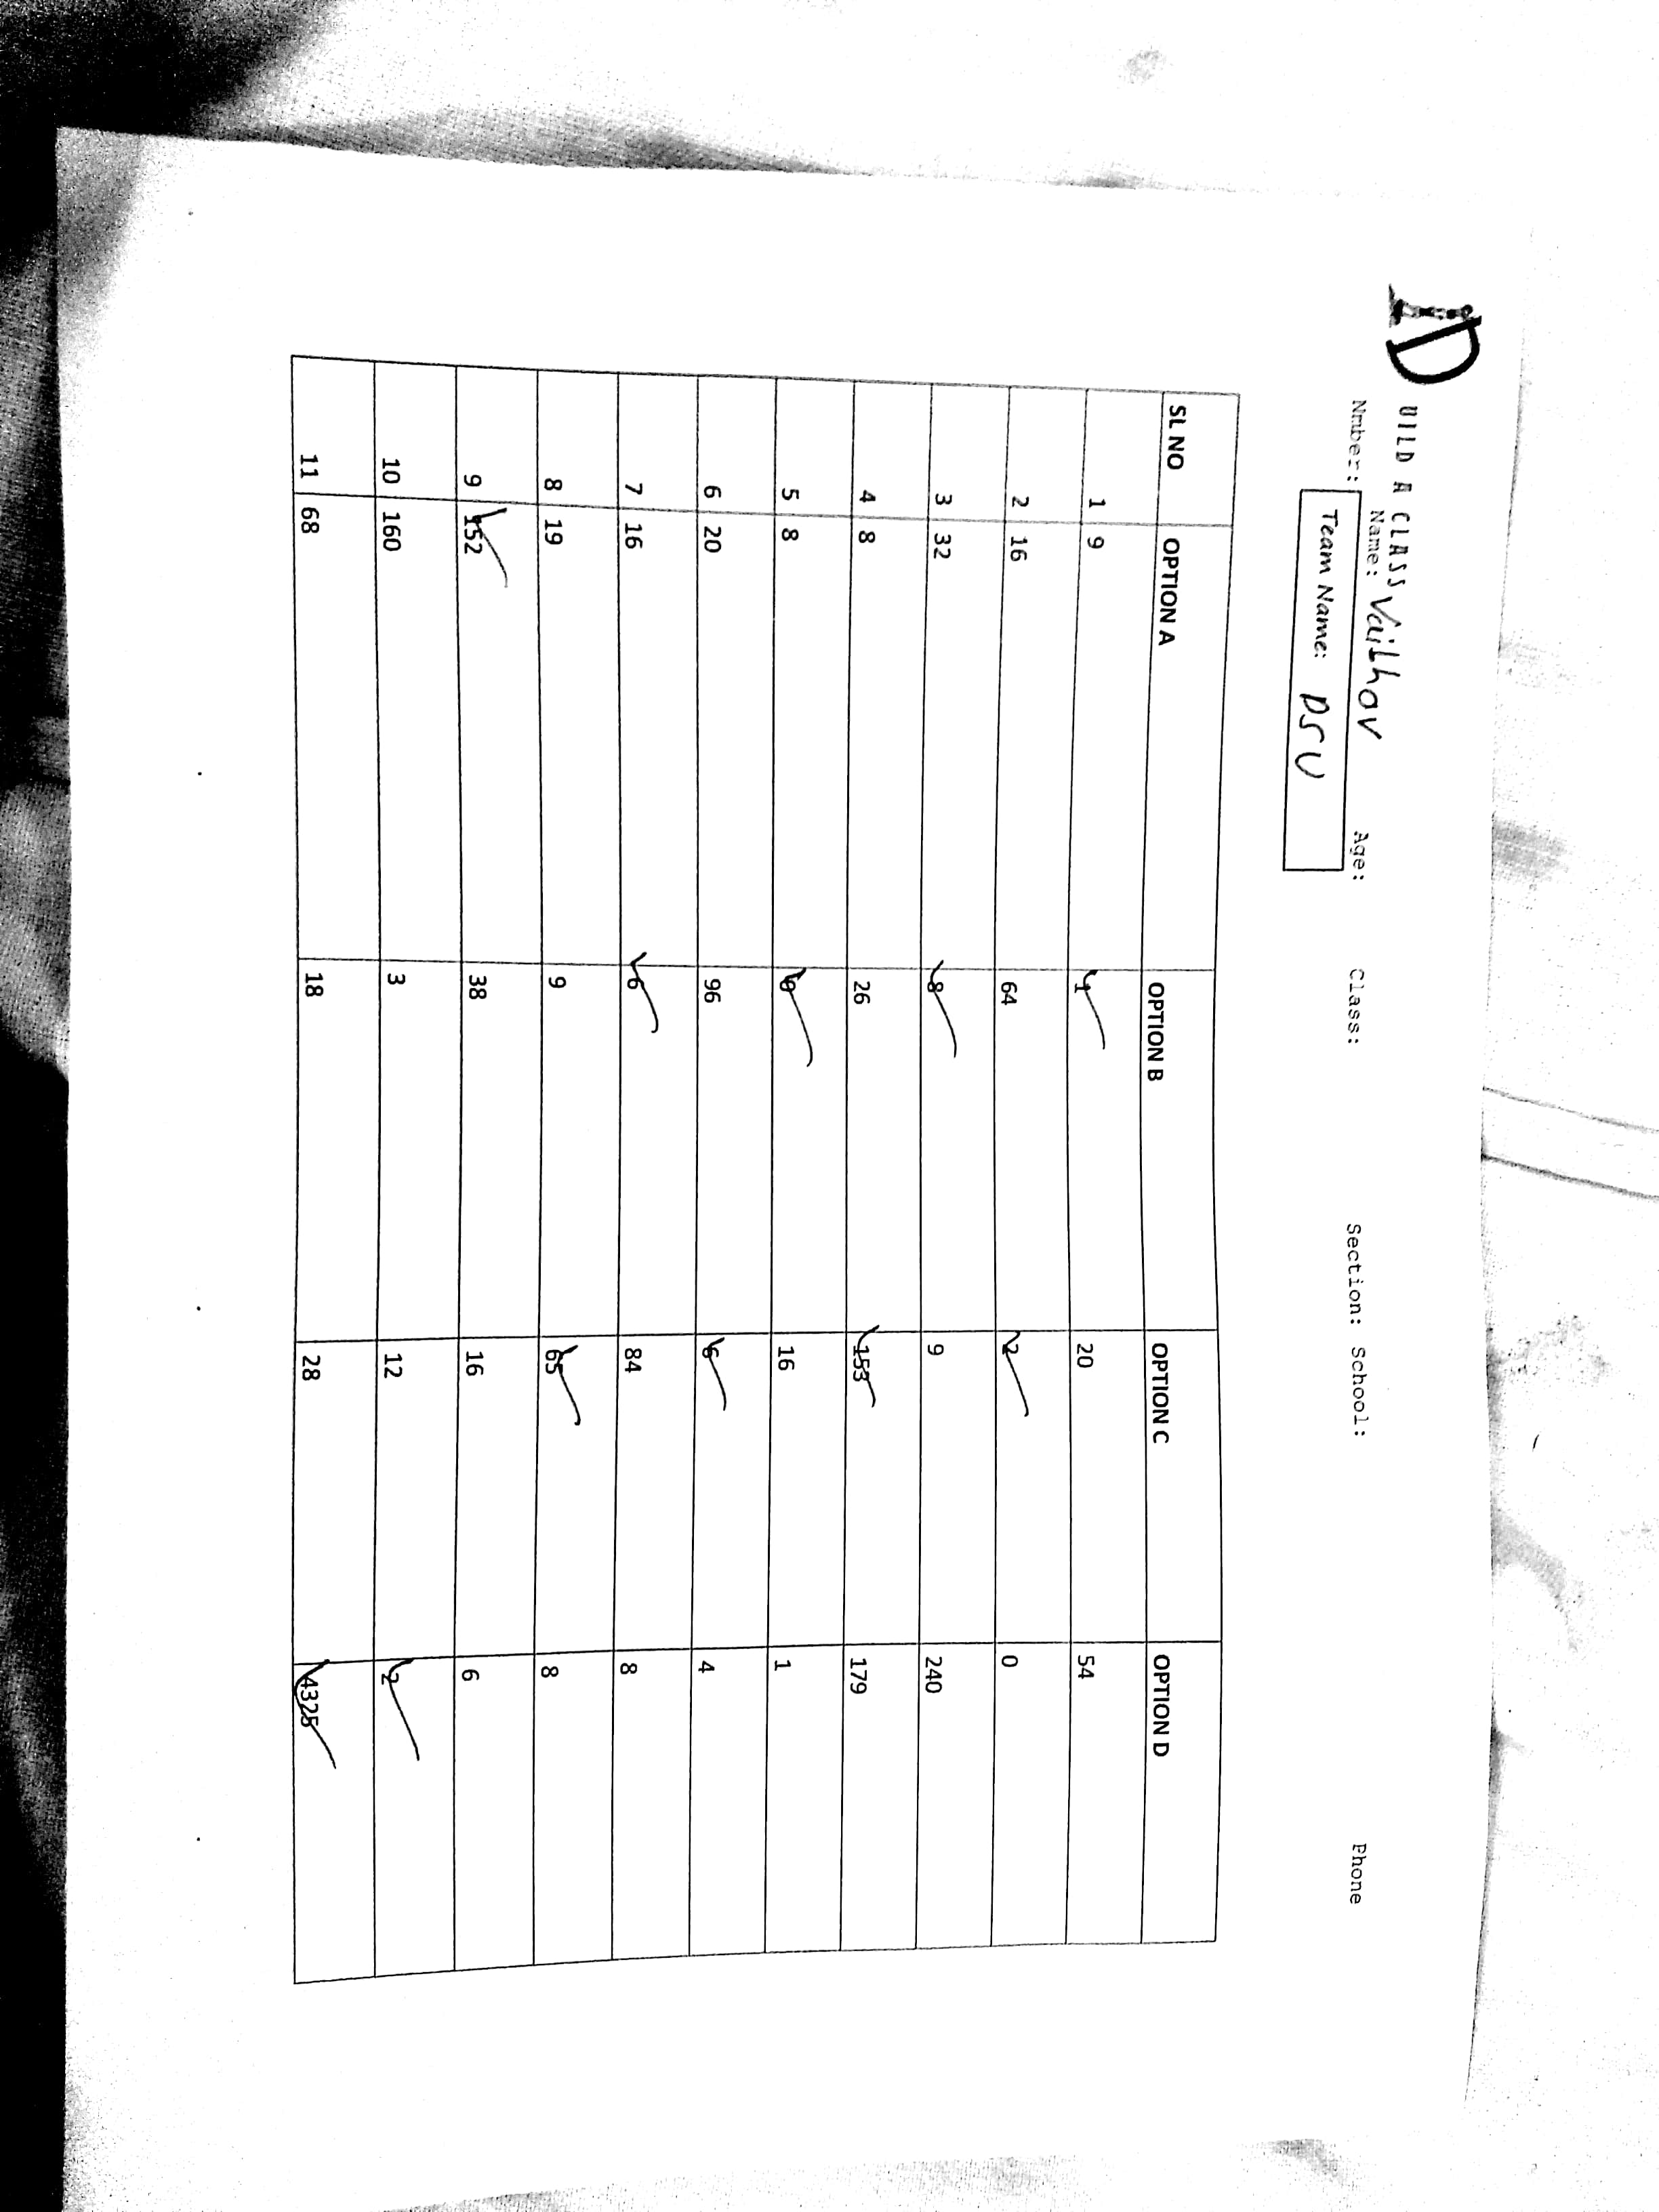 D UILD A CLASS
Name: Vaibhav Age: Class: Section: School: Phone
Nmber:
Team Name: DSU
SL NO OPTION A OPTION B OPTION C OPTION D
1 9 1 20 54
2 16 64 2 0
3 32 8 9 240
4 8 26 153 179
5 8 0 16 1
6 20 96 6 4
7 16 6 84 8
8 19 9 65 8
9 152 38 16 6
10 160 3 12 2
11 68 18 28 4325